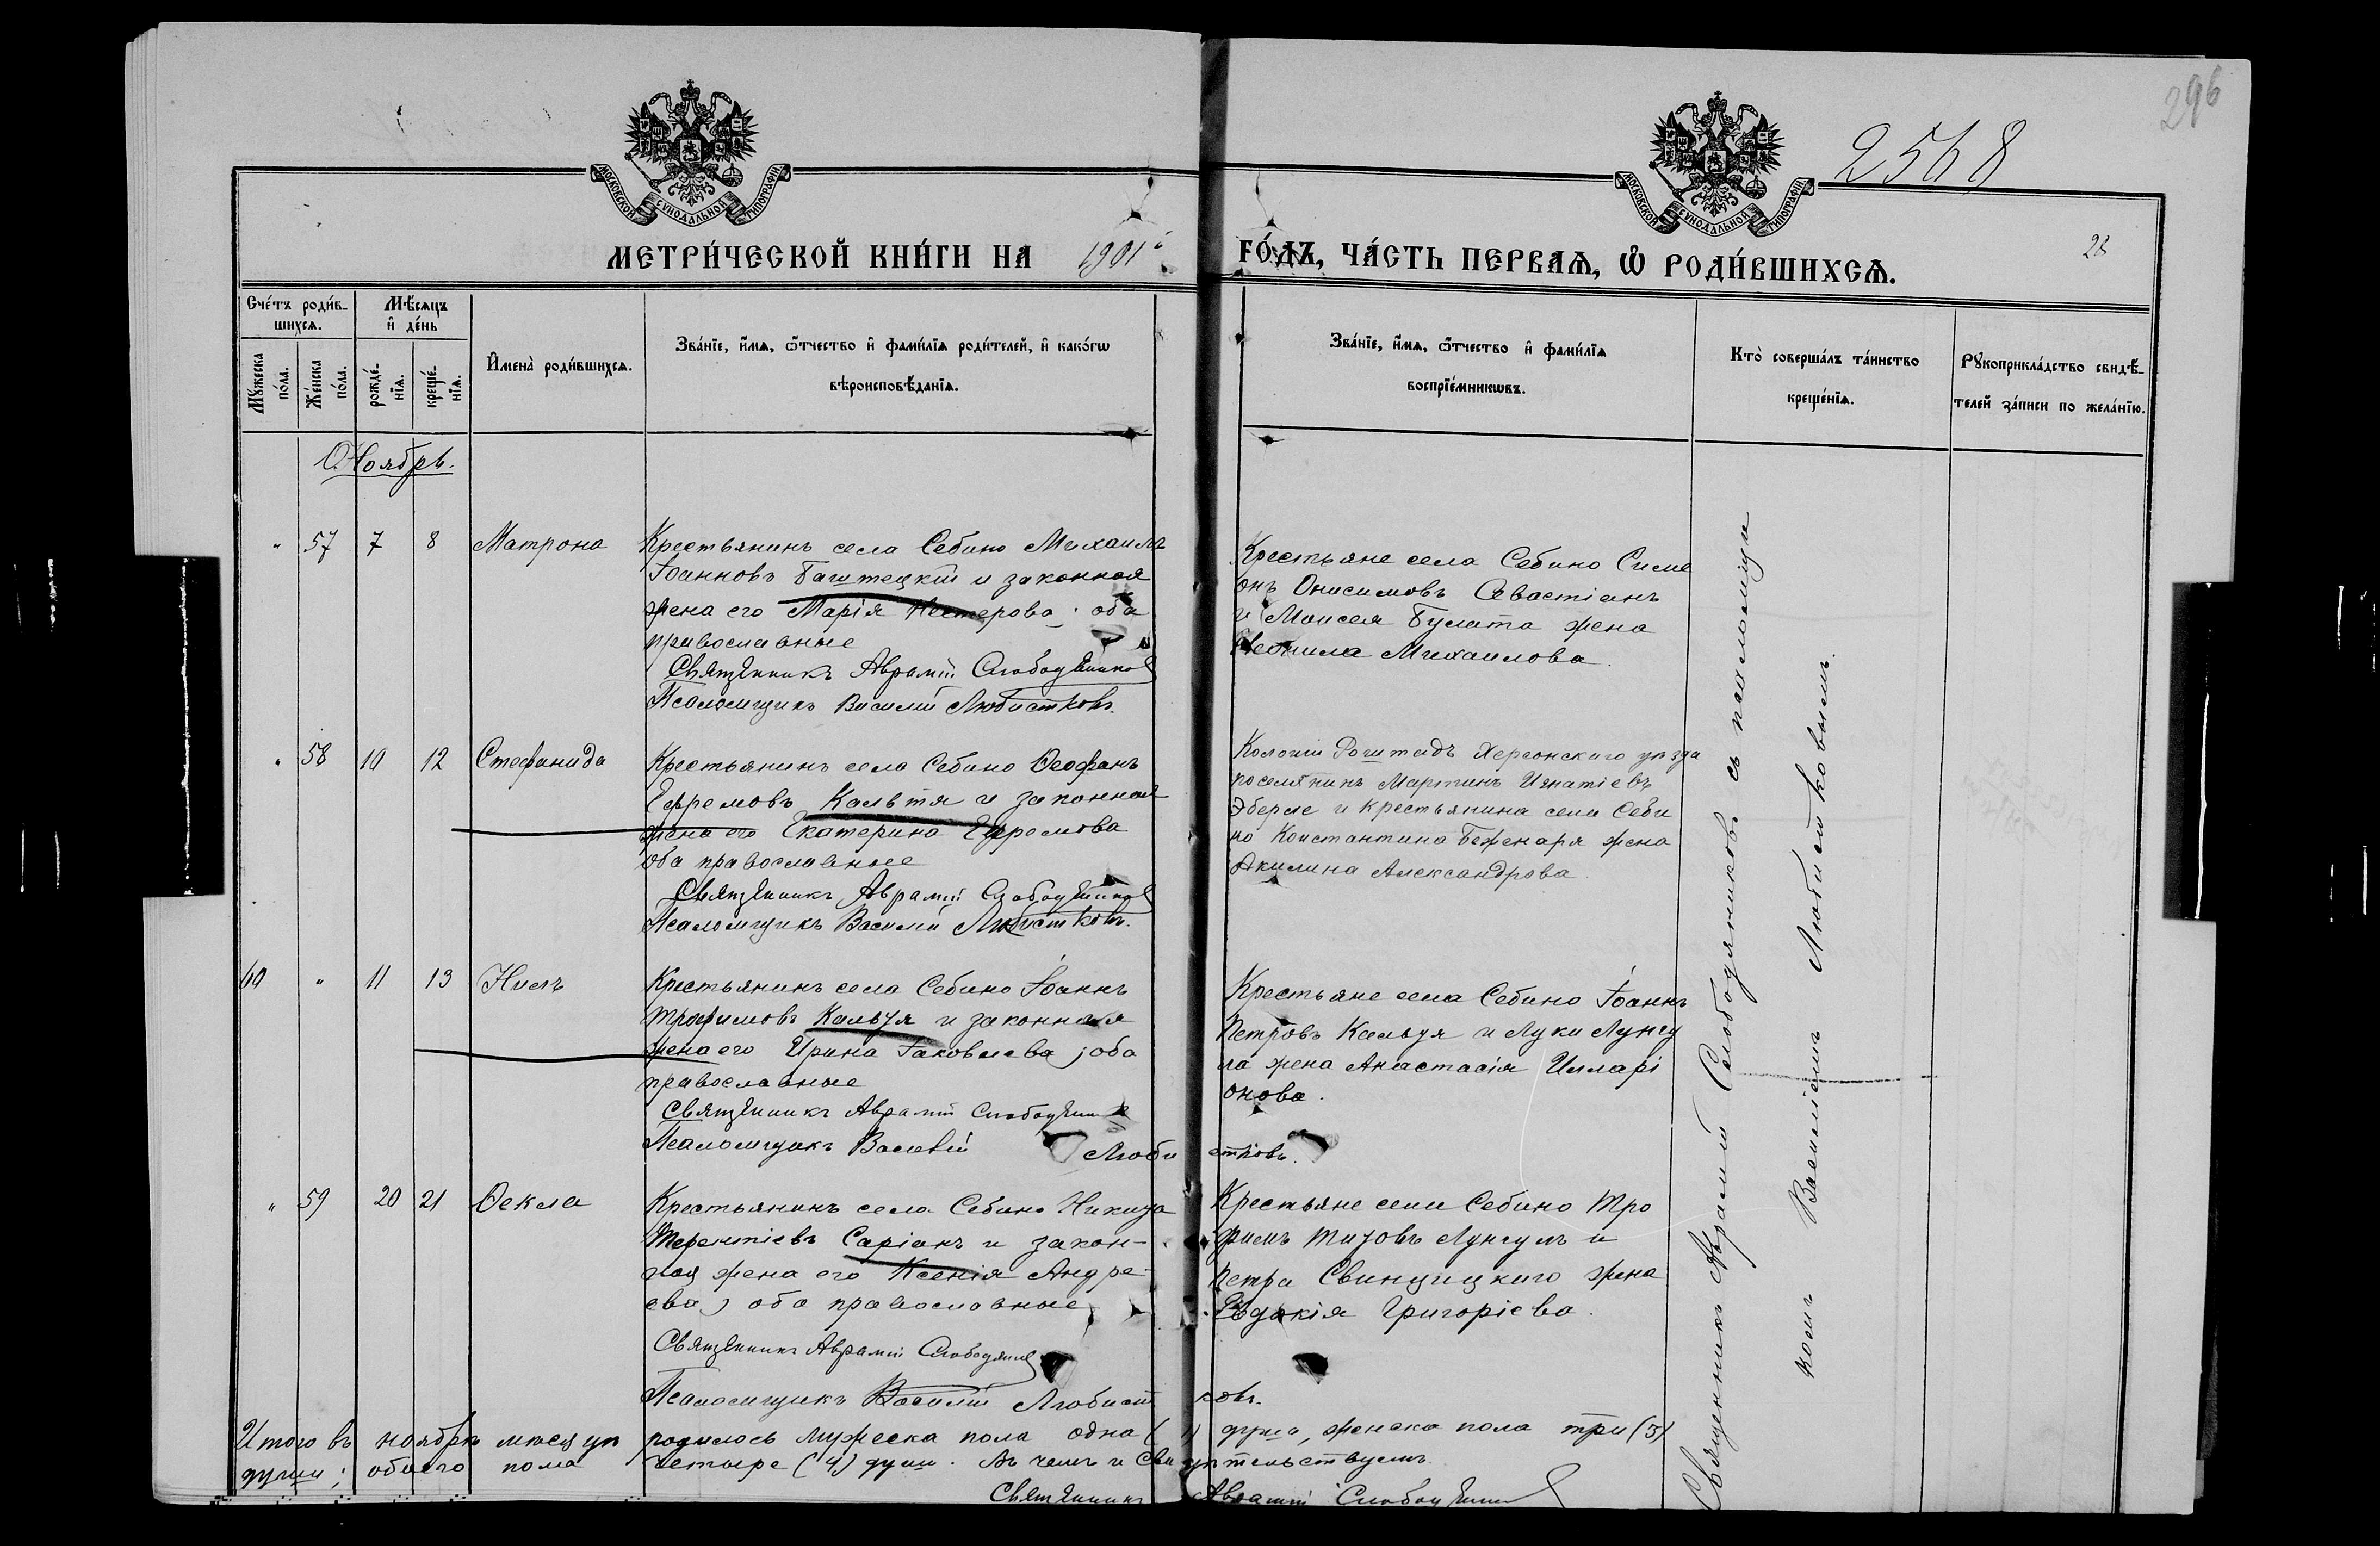 296
2568
МОСКОВСКОЙ СѴНОДАЛЬНОЙ ТИПОГРАФІИ
МОСКОВСКОЙ СѴНОДАЛЬНОЙ ТИПОГРАФІИ
МЕТРИ́ЧЕСКОЙ КНИ́ГИ НА 1901й ГО́ДЪ, ЧА́СТЬ ПЕРВАЯ, Ѡ РОДИ́ВШИХСЯ.
28
Сче́тъ роди́в-
шихся.
Мѣсяцъ
и де́нь
Мꙋжеска
по́ла.
Же́нска
по́ла.
рожде́-
нія.
креще́-
нія.
Имена̀ роди́вшихся.
Зва́ніе, и́мя, ѻтчество и фами́лія роди́телей, и како́гѡ
вѣроисповѣданія.
Зва́ніе, и́мя, ѻтчество и фами́лія
воспріе́мникѡвъ.
Кто̀ соверша́лъ та́инство
креще́нія.
Рꙋкоприкла́дство свидѣ-
телей за́писи по жела́нію.
Ноябрь.
" 57 7 8 Матрона
Крестьянинъ села Себино Михаилъ
Іоанновъ Баштецкій и законная
жена его Марія Нестерова; оба
православные
Священникъ Аврамій Слободяников
Псаломщикъ Василій Любистковъ.
Крестьяне села Себино Симе
онъ Онисимовъ Севастіанъ
и Моисея Булата жена
Михаилова
" 58 10 12 Стефанида
Крестьянинъ села Себино Ѳеофанъ
Ефремовъ Калытя и законная
жена его Екатерина Ефремова
оба православные
Священникъ Аврамій Слободяников
Псаломщикъ Василій Любистковъ.
Колоніи Роштадъ Херсонскаго уѣзда
поселянинъ Мартинъ Игнатіевъ
Эберле и крестьянина села Себи
но Константина Беженаря жена
Акилина Александрова.
60 " 11 13 Нилъ
Крестьянинъ села Себино Іоаннъ
Трофимовъ Кальзя и законная
жена его Ирина Іаковлева; оба
православные
Священникъ Аврамій
Псаломщикъ Василій Любистковъ.
Крестьяне села Себино Іоаннъ
Петровъ Кальзя и Луки Лунгу
ла жена Анастасія Илларі
онова.
" 59 20 21 Ѳекла
Крестьянинъ села Себино Никита
Терентіевъ Саріанъ и закон-
ная жена его Ксенія Андре-
ева; оба православные
Священникъ Аврамій
Псаломщикъ Василій Любистковъ.
Крестьяне села Себино Тро
фимъ Титовъ Лунгулъ и
Петра Свинцицкаго жена
Евдокія Григоріева.
Священникъ Аврамій Слободяниковъ съ псаломщи
комъ Василіемъ Любистковымъ.
Итого въ ноябрѣ мѣсяцѣ родилось мужеска пола одна (1) душа, женска пола три (3)
души; обоего пола четыре (4) душ. Въ чемъ и свидѣтельствуемъ
Священникъ Аврамій